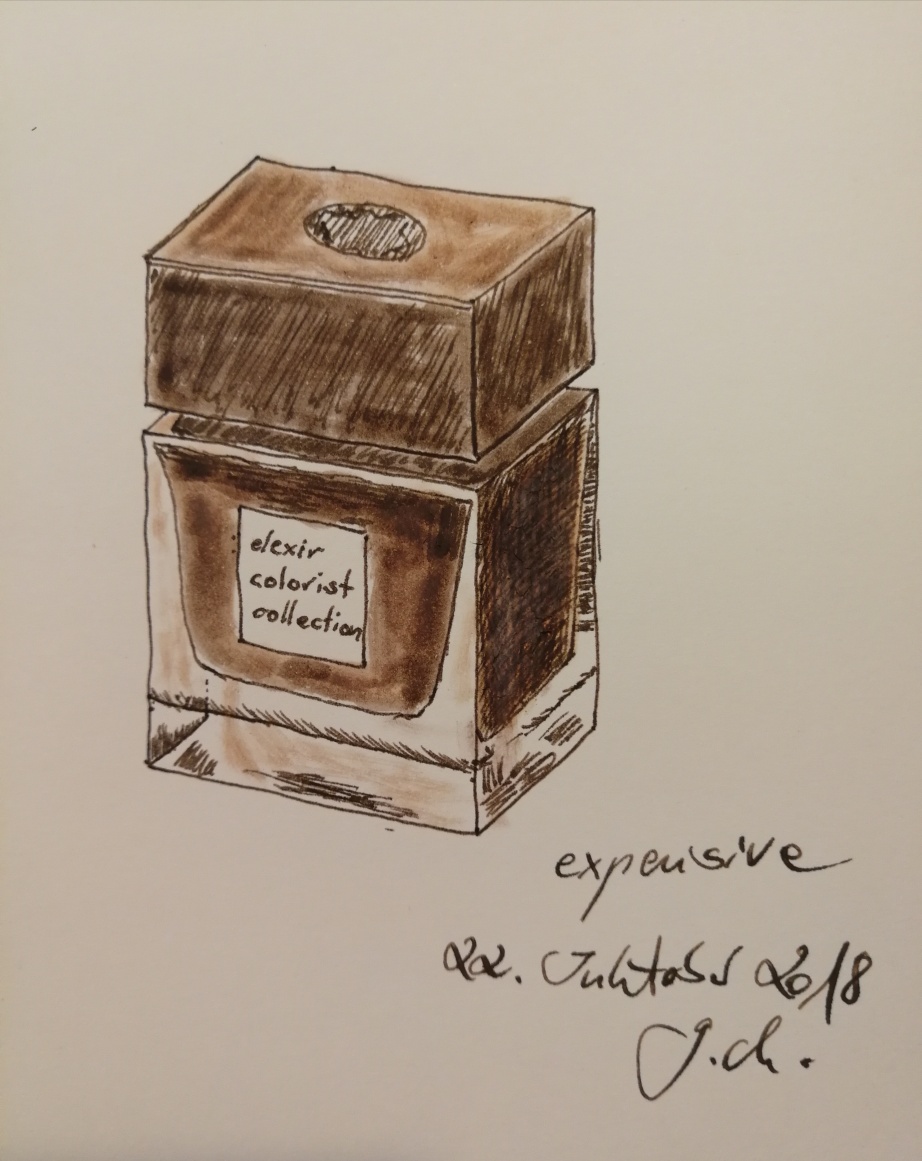 elexir
colorist
collection
expensive
22. Inktober 2018
J.ch.